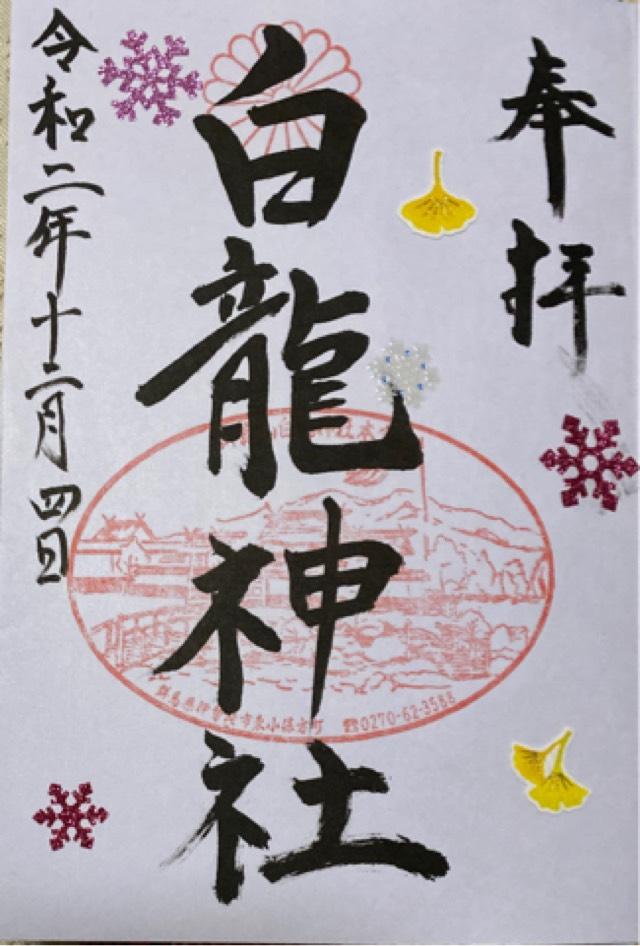 奉拝
白龍神社
令和二年十二月四日
群馬県伊勢崎市東小保方町 ☎0270-62-3588